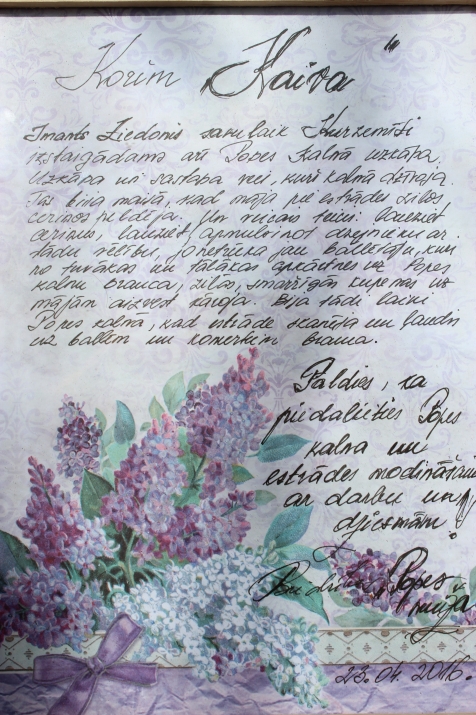 Korim "Kaiva"
Imants Ziedonis savulaik Kurzemīti
izstaigādams arī Popes kalnā uzkāpa.
Uzkāpa un sastapa veci, kurš kalnā dzīvoja.
Tas bija maijā, kad māja pie estrādes zilos
ceriņos peldēja. Un vecais teicis: lauziet
ceriņus, lauziet, apmulsinot dzejnieku ar
tādu vēlību, jo netrūka jau ballētāju, kuri
no tuvākas un tālākas apkārtnes uz Popes
kalnu brauca, zilos, smaržīgos kupenus uz
mājām aizvest kāroja. Bija tādi laiki
Popes kalnā, kad estrāde skanēja un ļaudis
uz ballēm un koncertiem brauca.
Paldies, ka
piedalieties Popes
kalna un
estrādes modināšanā
ar darbu un
dziesmām!
Biedrība "Popes
muiža"
23.04.2016.